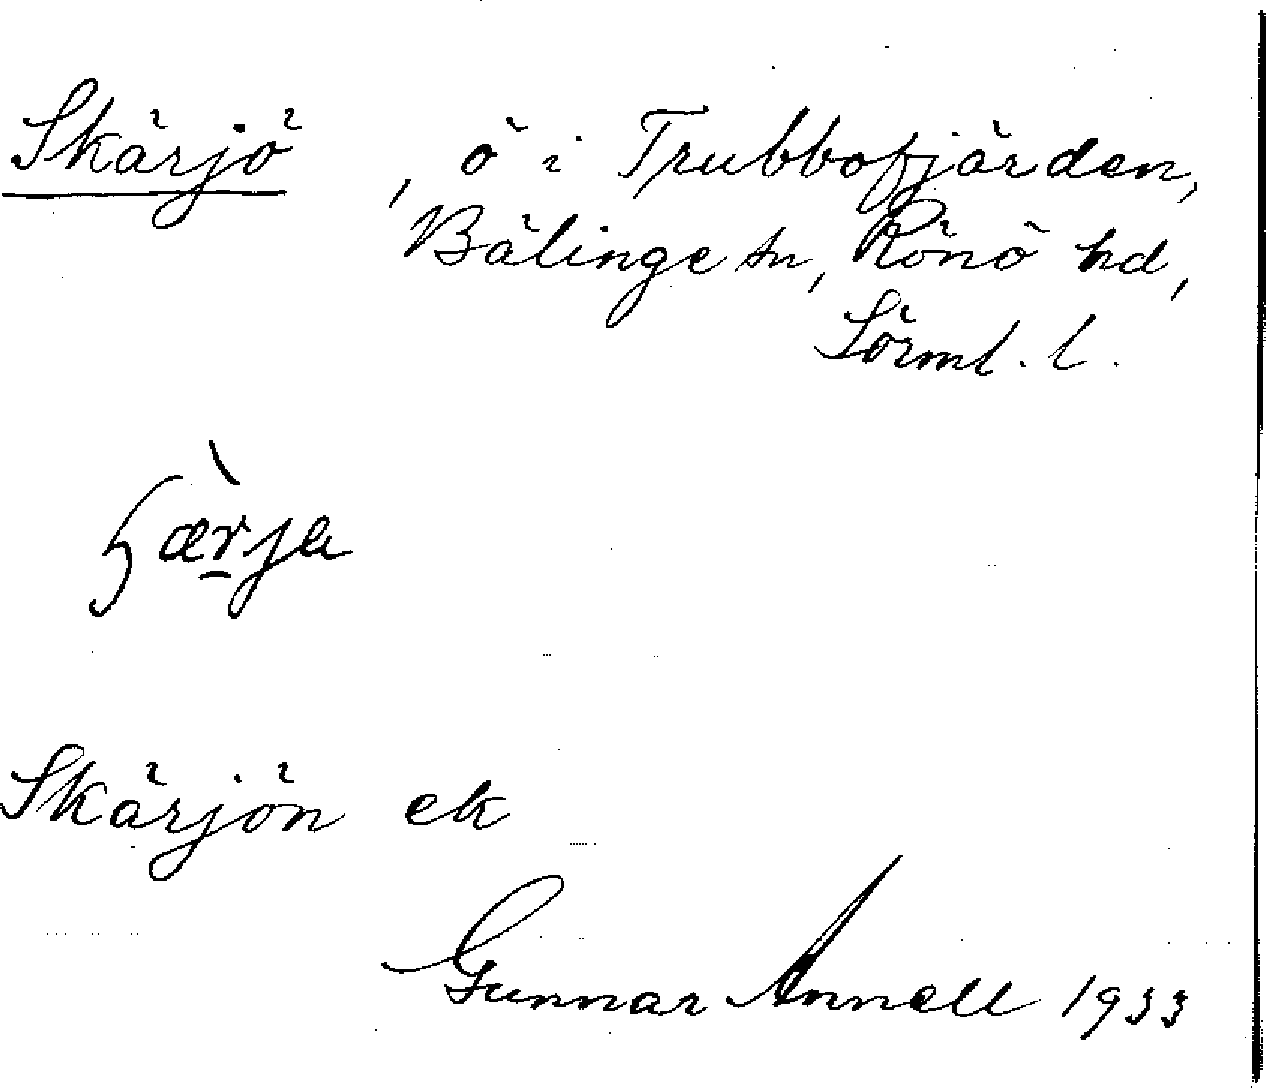 Skärjö, ö i Trubbofjärden,
Bälinge sn, Rönö hd,
Sörml. l.
Skärjön ek
Gunnar Annell 1933